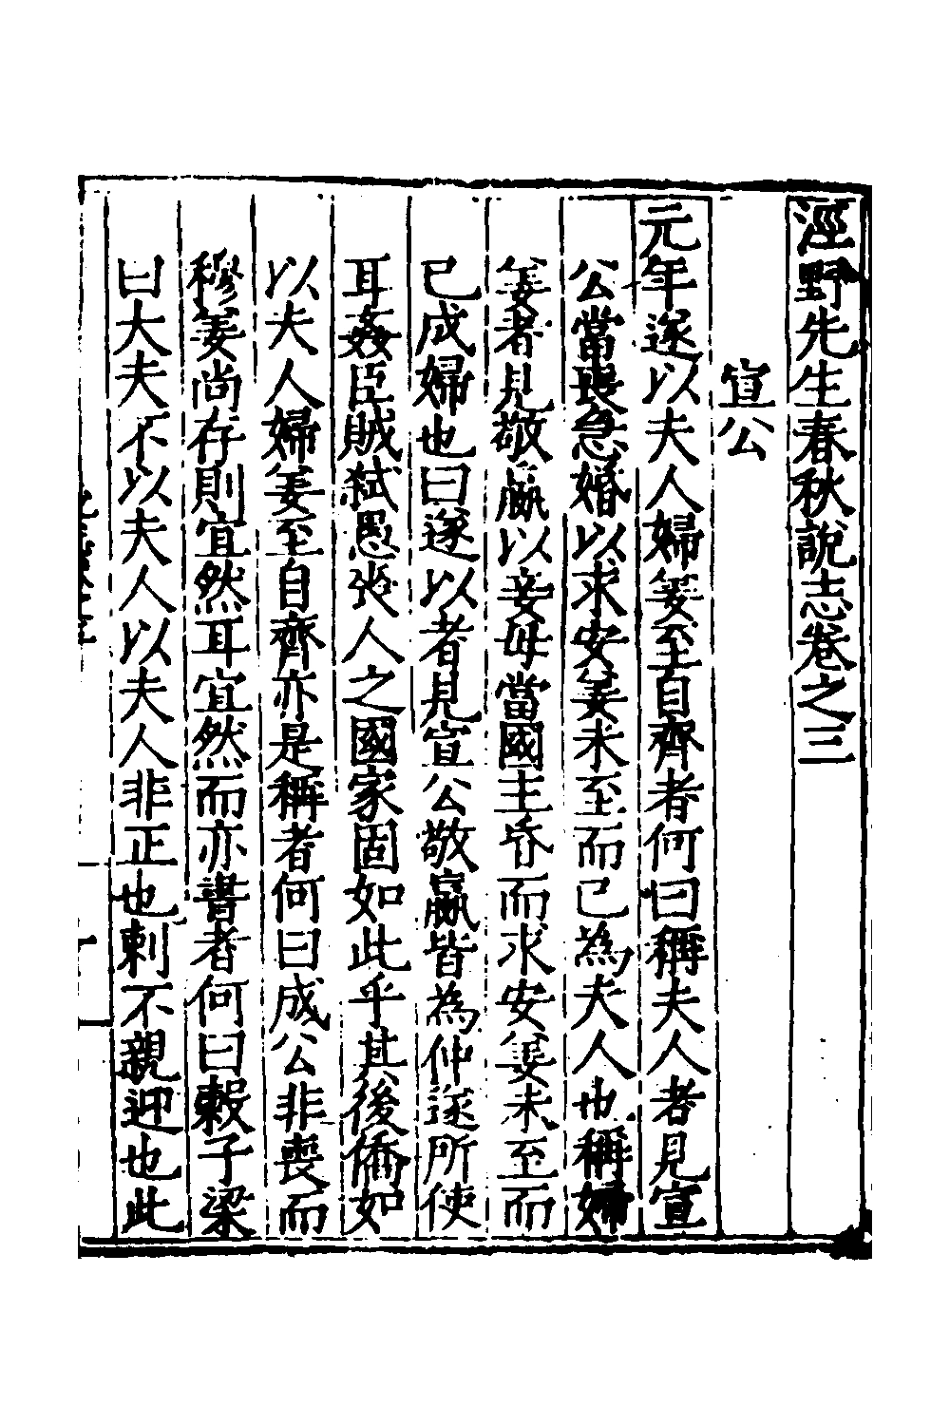 涇野先生春秋說志卷之三
宣公
元年遂以夫人婦姜至自齊者何曰稱夫人者見宣
公當喪急婚以求安姜未至而已為夫人也稱婦
姜者見敬嬴以妾母當國主昏而求安姜未至而
已成婦也曰遂以者見宣公敬嬴皆為仲遂所使
耳姦臣賊弑愚喪人之國家固如此乎其後僑如
以夫人婦姜至自齊亦是稱者何曰成公非喪而
穆姜尚存則宜然耳宜然而亦書者何曰穀子梁
曰大夫不以夫人以夫人非正也刺不親迎也此